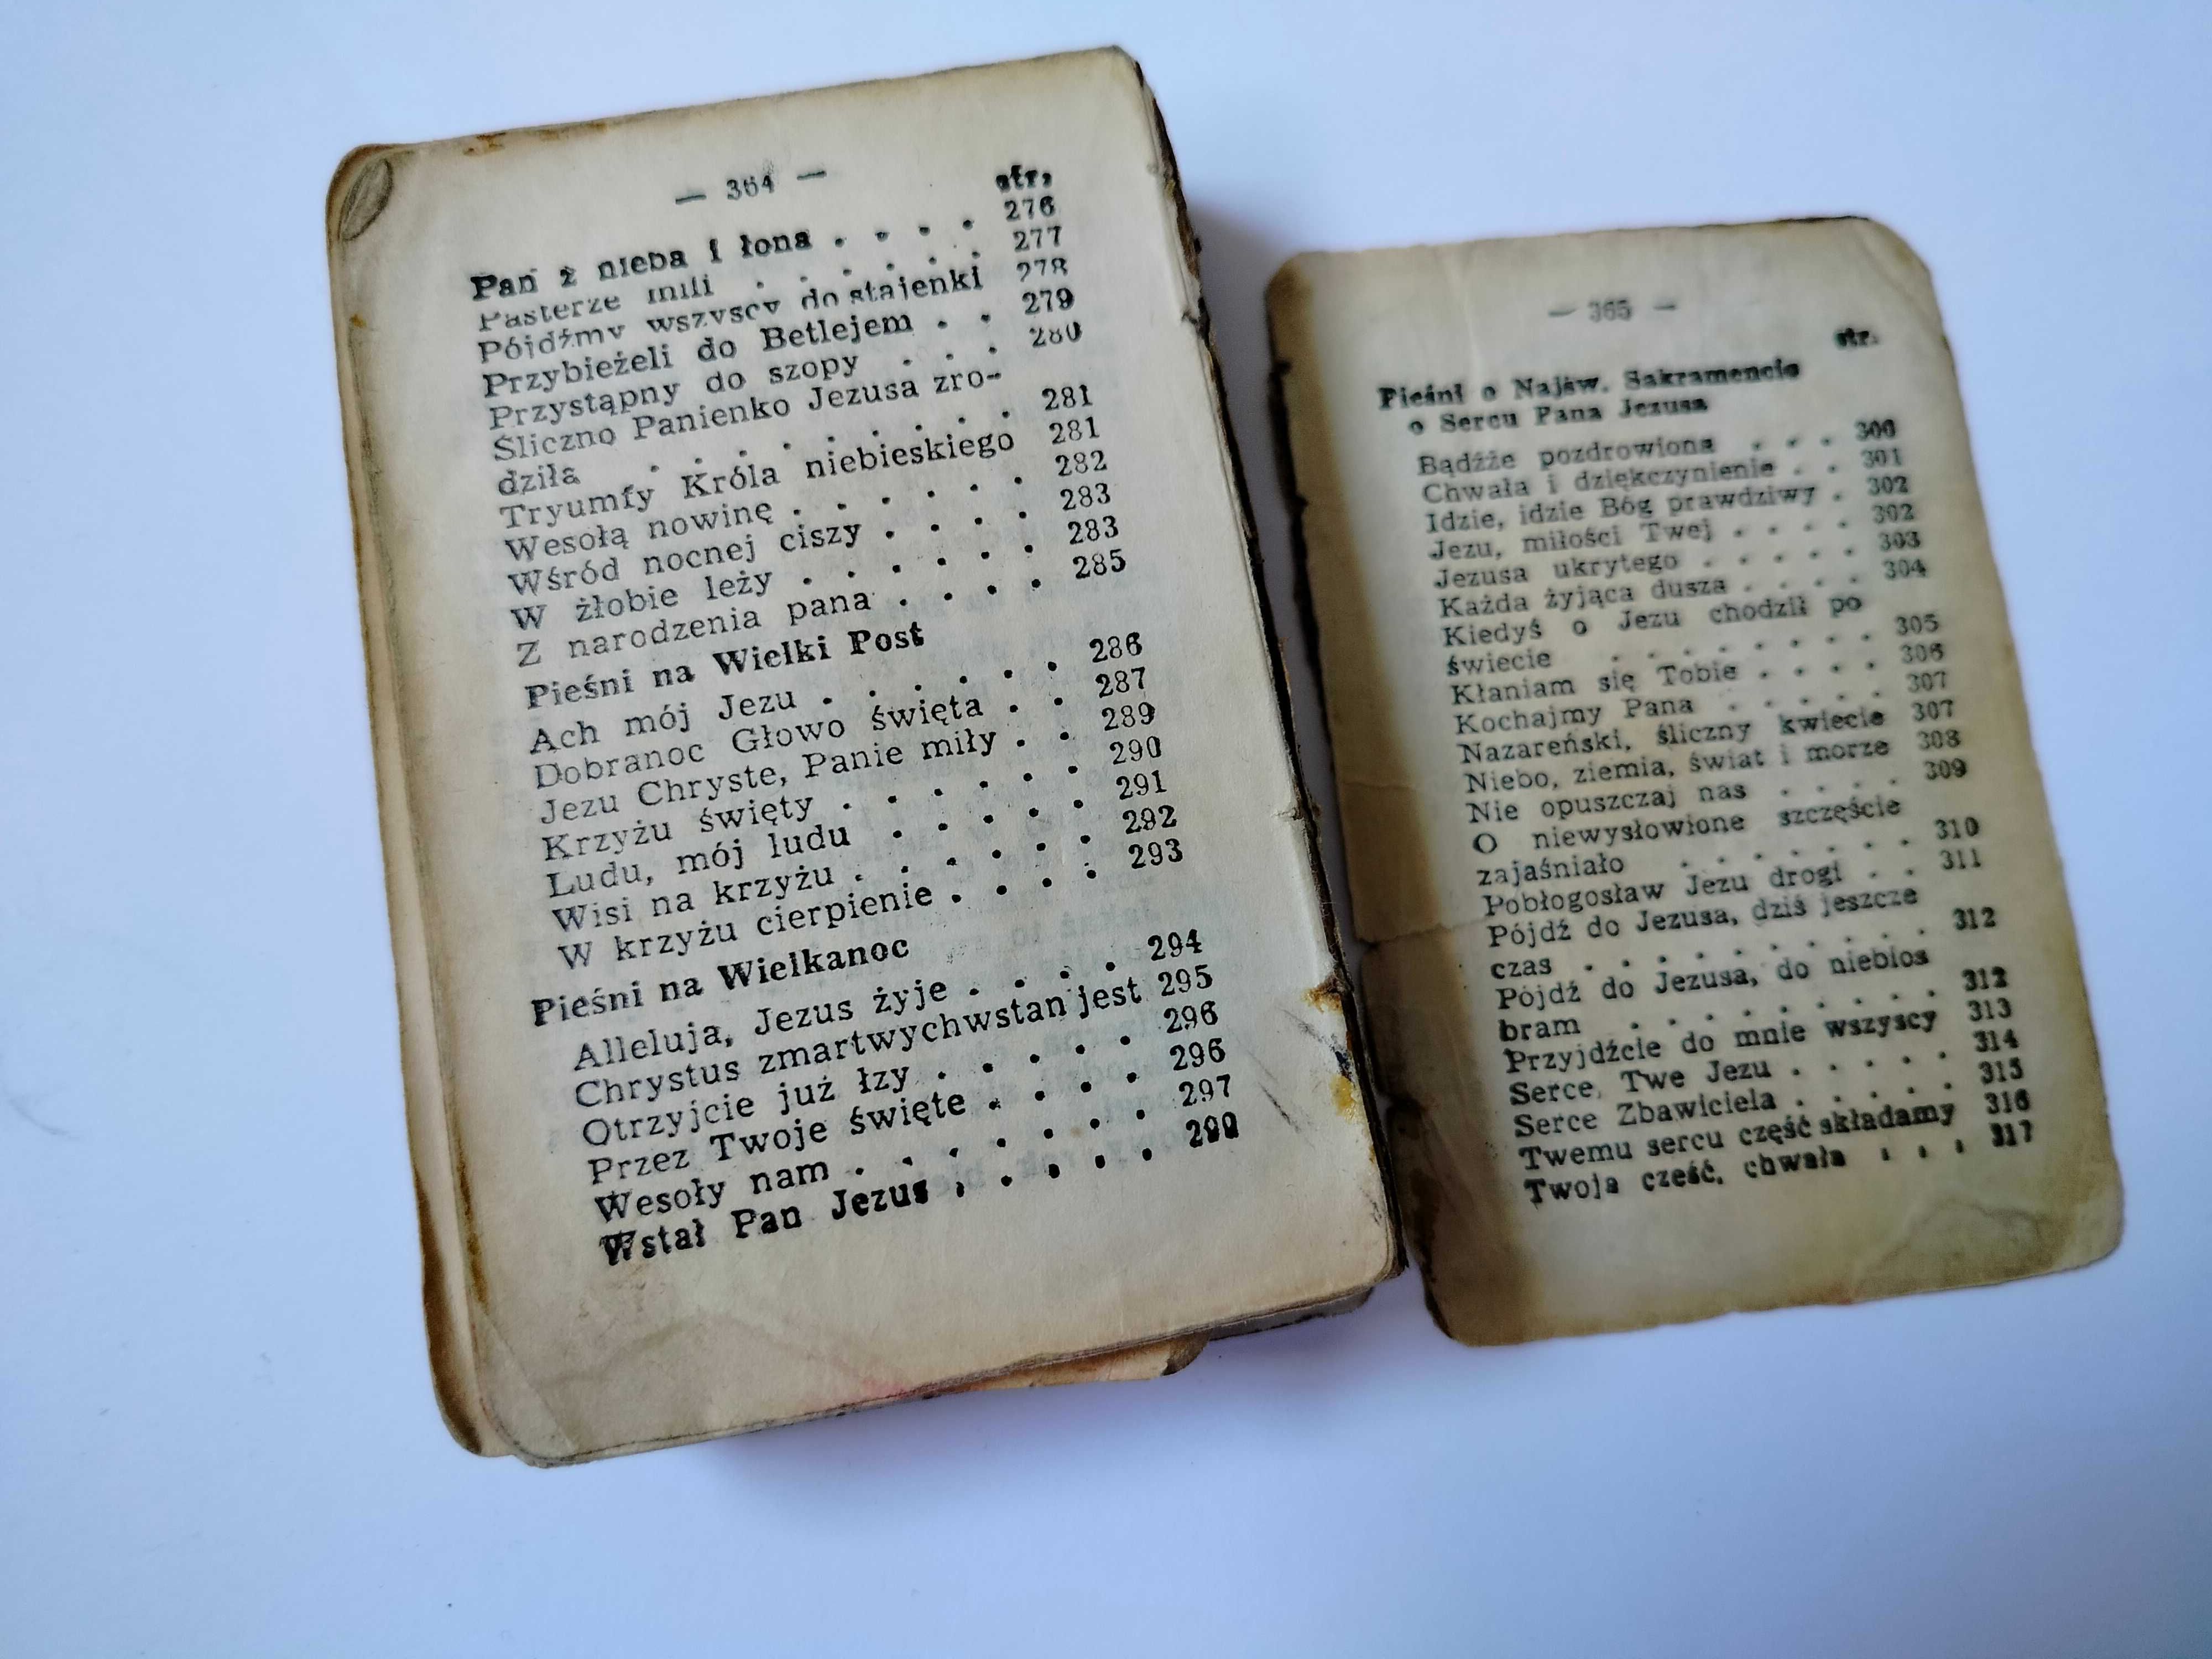 — 364 —
str.
Pan z nieba i łona . . . . 276
Pasterze mili . . . . . . 277
Pójdźmy wszyscy do stajenki 278
Przybieżeli do Betlejem . . 279
Przystąpny do szopy . . . 280
Śliczno Panienko Jezusa zro-
dziła . . . . . . . . 281
Tryumfy Króla niebieskiego 281
Wesołą nowinę . . . . . . 282
Wśród nocnej ciszy . . . . 283
W żłobie leży . . . . . . 283
Z narodzenia pana . . . . 285
Pieśni na Wielki Post
Ach mój Jezu . . . . . . 286
Dobranoc Głowo święta . . 287
Jezu Chryste, Panie miły . . 289
Krzyżu święty . . . . . . 290
Ludu, mój ludu . . . . . 291
Wisi na krzyżu . . . . . . 292
W krzyżu cierpienie . . . . 293
Pieśni na Wielkanoc
Alleluja, Jezus żyje . . . . 294
Chrystus zmartwychwstan jest 295
Otrzyjcie już łzy . . . . . 296
Przez Twoje święte . . . . 296
Wesoły nam . . . . . . . 297
Wstał Pan Jezus . . . . . 299
— 365 —
str.
Pieśni o Najśw. Sakramencie
o Sercu Pana Jezusa
Bądźże pozdrowiona . . . 300
Chwała i dziękczynienie . . 301
Idzie, idzie Bóg prawdziwy . 302
Jezu, miłości Twej . . . . 302
Jezusa ukrytego . . . . . 303
Każda żyjąca dusza . . . . 304
Kiedyś o Jezu chodził po
świecie . . . . . . . 305
Kłaniam się Tobie . . . . 306
Kochajmy Pana . . . . . 307
Nazareński, śliczny kwiecie 307
Niebo, ziemia, świat i morze 308
Nie opuszczaj nas . . . . 309
O niewysłowione szczęście
zajaśniało . . . . . . . 310
Pobłogosław Jezu drogi . . 311
Pójdź do Jezusa, dziś jeszcze
czas . . . . . . . . . 312
Pójdź do Jezusa, do niebios
bram . . . . . . . . 312
Przyjdźcie do mnie wszyscy 313
Serce, Twe Jezu . . . . . 314
Serce Zbawiciela . . . . . 315
Twemu sercu cześć składamy 316
Twoja cześć, chwała . . . 317